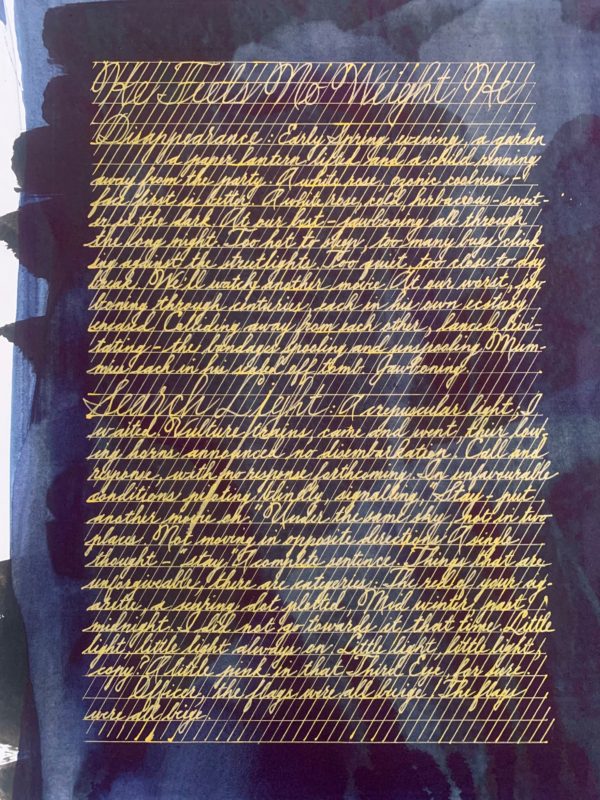 He Feels No Weight He
Disappearance: Early Spring, evening, a garden
a paper lantern lit and a child running
away from the party. A white rose, ozonic coolness –
face first is better. A white rose, cold, herbaceous-sweet-
in the dark. At our best – jawboning all through
the long night. Too hot to sleep, too many bugs clink
ing against the streetlights. Too quiet, too close to day
break. We'll watch another movie. At our worst, jaw
boning through centuries, each in his own ecstasy,
encased. Colliding away from each other, lanced, levi-
tating – the bandages spooling and unspooling. Mum-
mies each in his sealed off tomb. Jawboning.
Search Light: A crepuscular light, I
waited. Vulture trains, came and went, their low-
ing horns announced no disembarkation. Call and
response, with no response forthcoming. In unfavourable
conditions piloting blindly, signalling. "Stay put,
another movie ok." Under the same sky not in two
places. Not moving in opposite directions. A single
thought – "stay." A complete sentence. Things that are
unforgivable: there are categories: the red of your cig-
arette, a scurrying dot plotted. Mid winter, past
midnight. I did not go towards it, that time. Little
light, little light always on. Little light, little light,
copy? A little pink in that Third Eye, for sure.
Officer, the flags were all beige. The flags
were all beige.